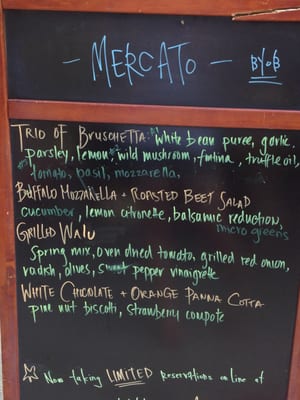 - MERCATO -
BYOB
TRIO OF BRUSCHETTA: #1 White bean puree, garlic,
parsley, lemon #2 wild mushroom, fontina, truffle oil,
#3 tomato, basil, mozzarella,
BUFFALO MOZZARELLA + ROASTED BEET SALAD
cucumber, lemon citronette, balsamic reduction,
micro greens
GRILLED WALU
Spring mix, oven dried tomato, grilled red onion,
radish, olives, sweet pepper vinaigrette
WHITE CHOCOLATE + ORANGE PANNA COTTA
pine nut biscotti, strawberry compote
Now taking LIMITED Reservations online at